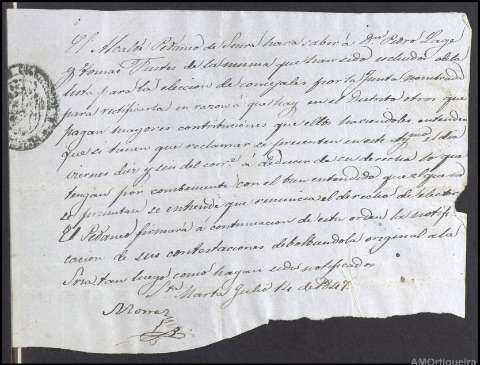 El Alcalde Pedaneo de Senra hara saber á Dn. Pedro Lage
y Tomas Fustes de la misma que han sido escluidos de la
lista para la eleccion de concejales por la Junta nombrada
para rectificarla en razon á que hay en el Distrito otros que
pagan mayores contribuciones que ellos haciendoles entender
que si tienen que reclamar se presenten en este el dia
viernes diez y seis del corre. á deducir de su derecho lo que
tengan por combeniente con el bien entendido que el que no
se presentare se entiende que renuncia el derecho de elector
El Pedaneo firmará á continuacion de esta orden la notifi-
cacion de sus contestaciones debolbiendola original a la
Sria tan luego como hayan sido notificados
Sta. Marta Julio 14 de 1847.
AMOrtigueira